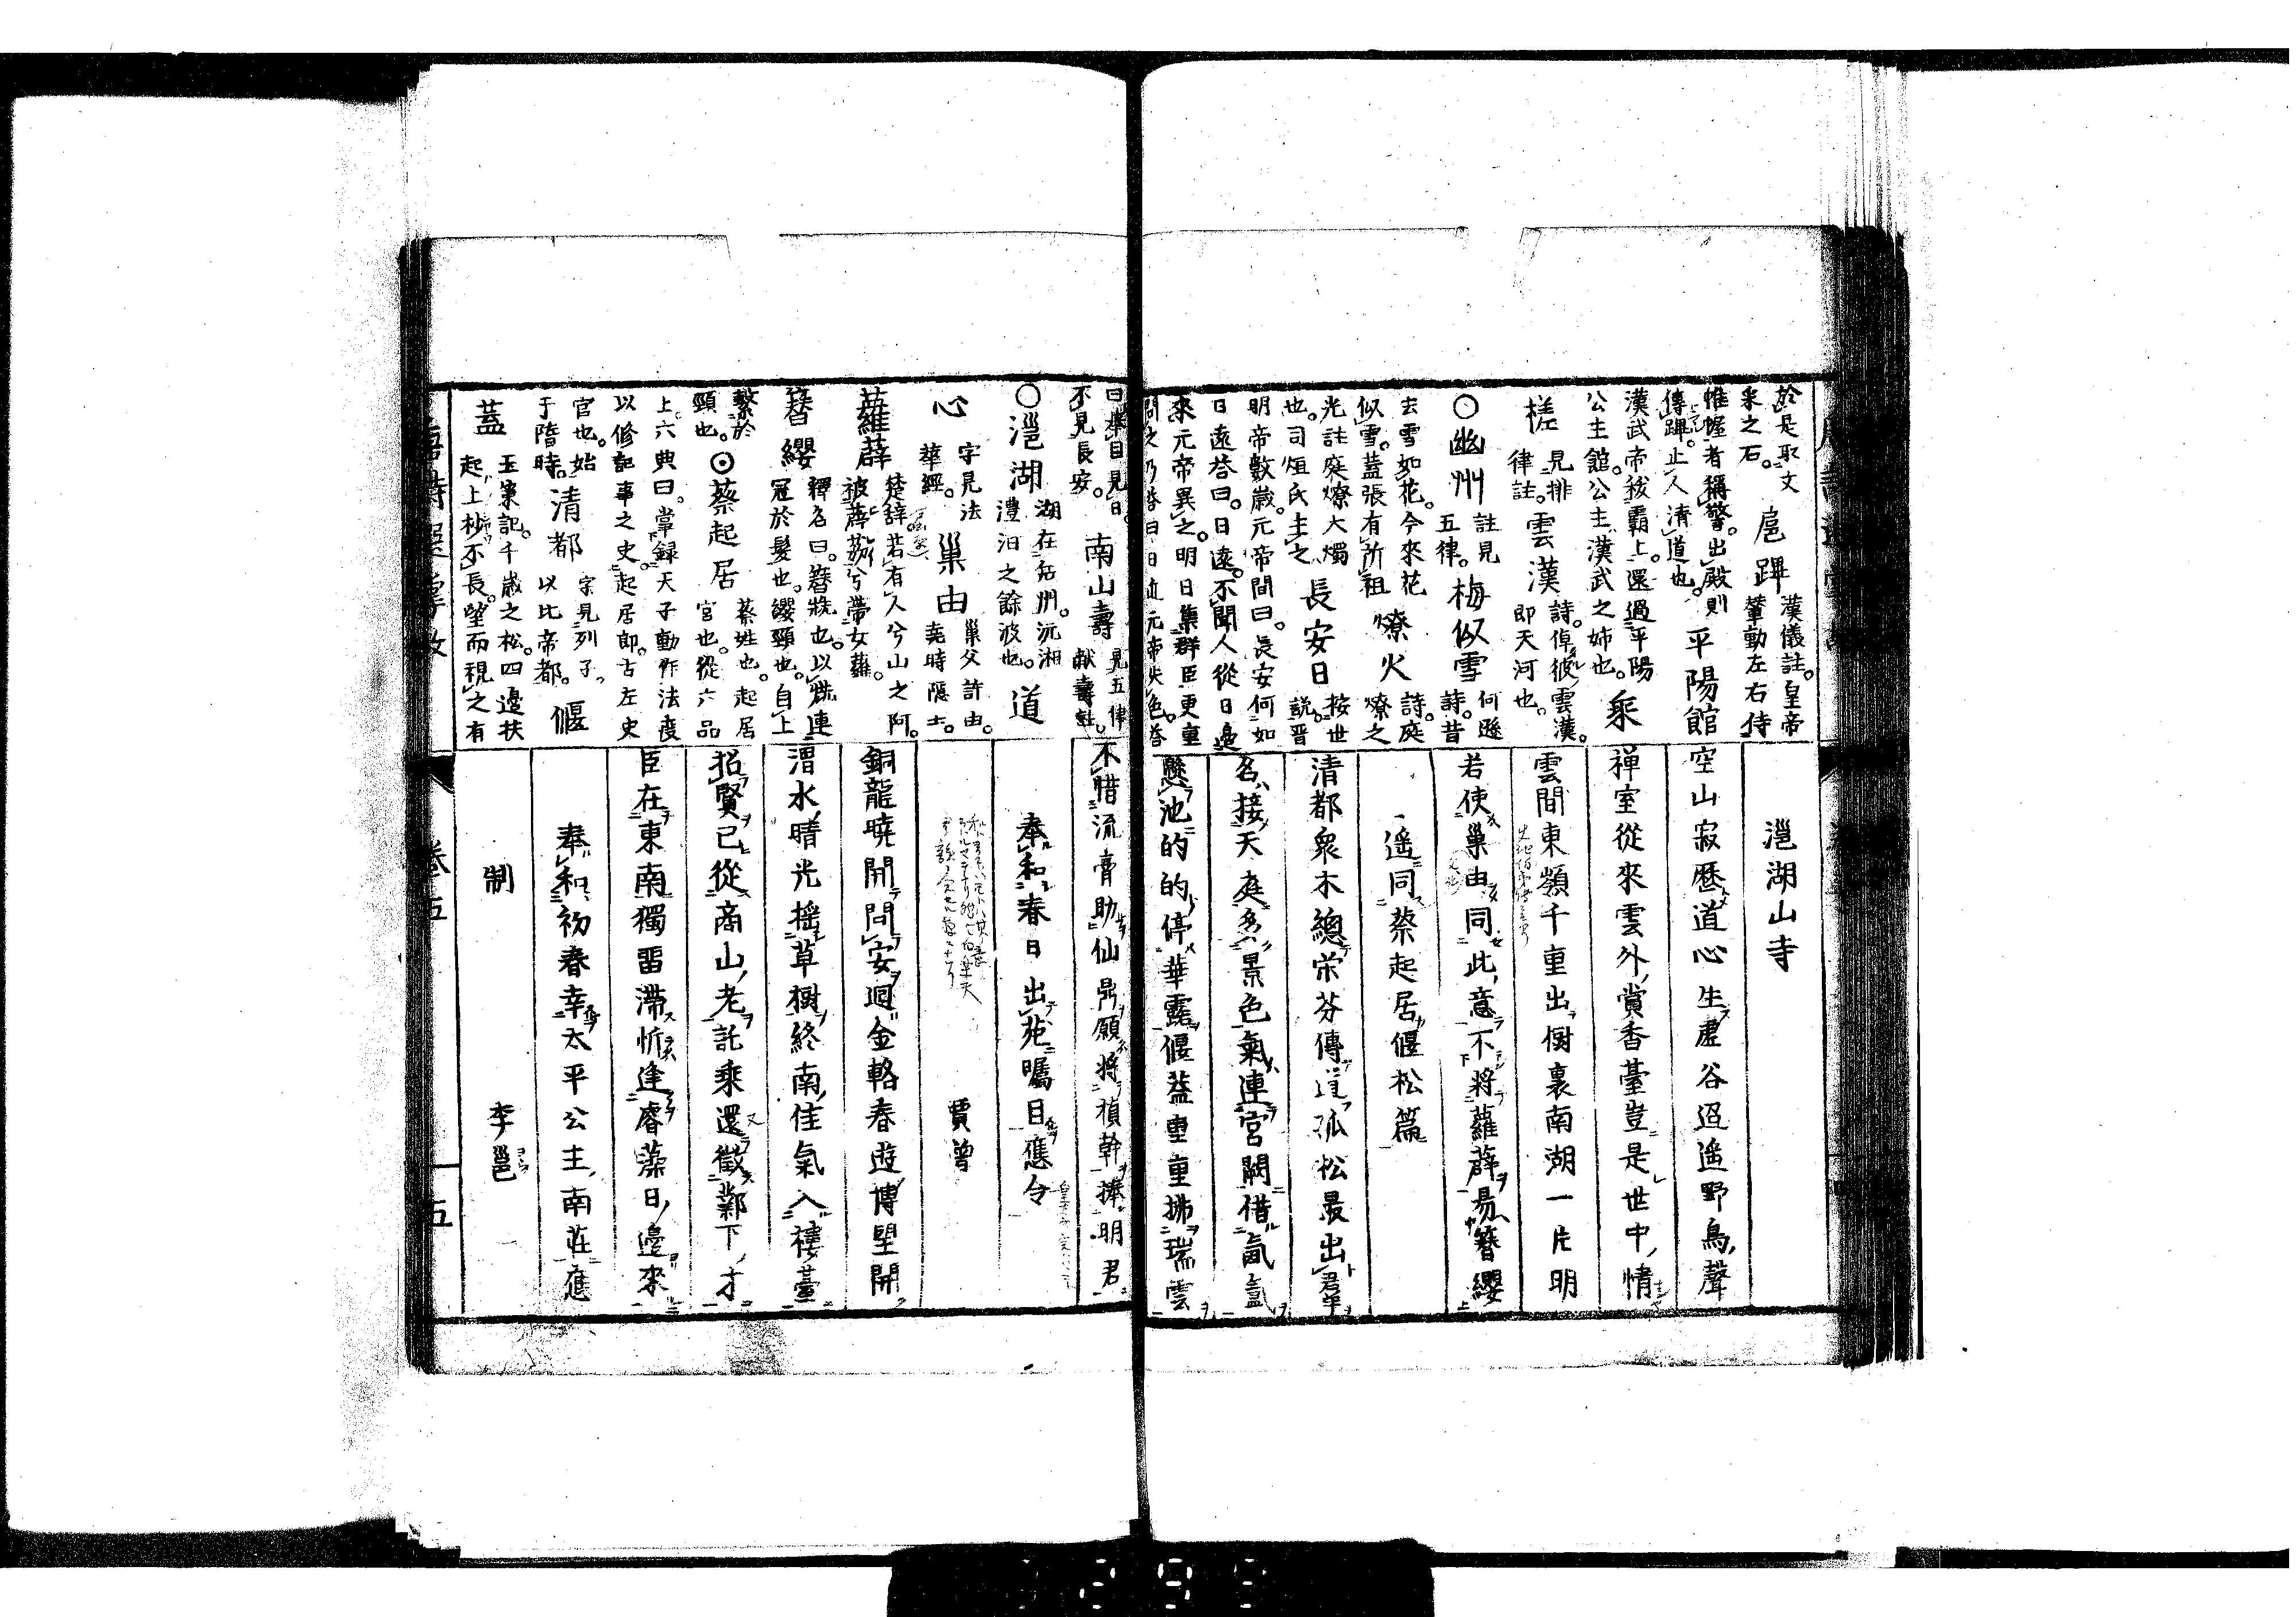 於是取文
采之石。
扈蹕
漢儀註。皇帝
輦動左右侍
惟幄者稱警。出殿則
傳蹕。止人清道也。
平陽館
漢武帝祓霸上。還過平陽
公主館。公主漢武之姉也。
乘
槎
見排
律註。
雲漢
詩。倬彼雲漢。
即天河也。
○幽州
註見
五律。
梅似雪
何遜
詩。昔
去雪如花。今來花
似雪。蓋張有所祖
燎火
詩。庭
燎之
光註庭燎大燭
也。司烜氏主之
長安日
按世
説。晋
明帝數歳。元帝問曰。長安何如
日遠答曰。日遠。不聞人從日邊
來元帝異之。明日集群臣更重
問之乃答曰日近元帝失色。答
邕湖山寺
空山寂歴道心生虗谷迢遥野鳥聲
禅室從來雲外賞香臺豈是世中情
雲間東嶺千重出樹裏南湖一片明
若使巢由同此意不將蘿薜易簪纓
遥同蔡起居偃松篇
清都衆木總榮芬傳道孤松最出群
名接天庭多景色氣連宮闕借氤氲
懸池的的停華露偃蓋重重拂瑞雲
曰擧目見日。
不見長安。
南山壽
見五律
獻壽註。
○邕湖
湖在岳州。沅湘
澧汨之餘波也。
道
心
字見法
華經。
巢由
巢父許由。
堯時隱士。
蘿薜
楚辞。若有人兮山之阿。
被薜茘兮帶女蘿。
簪纓
釋名曰。簪兟也。以兟連
冠於髮也。纓頸也。自上
繫於
頸也。
⊙蔡起居
蔡姓也。起居
官也。從六品
上。六典曰。掌録天子動作法度
以修記事之史。起居郎。古左史
官也。始
于隋時。
清都
字見列子。
以比帝都。
偃
蓋
玉策記。千歳之松。四邊扶
起上杪不長。望而視之有
不惜流膏助仙鼎願將楨幹捧明君
奉和春日出苑矚目應令
賈曾
銅龍曉開問安迴金輅春遊博望開
渭水晴光揺草樹終南佳氣入樓臺
招賢已從商山老託乘還徴鄴下才
臣在東南獨留滯忻逢睿藻日邊來
奉和初春幸太平公主南莊應
制
李邕
卷五
五